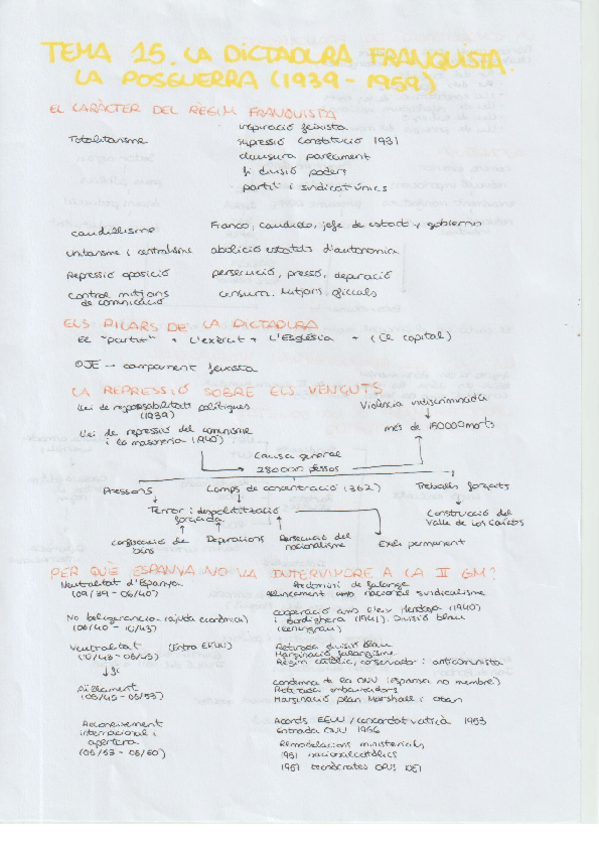 TEMA 15. LA DICTADURA FRANQUISTA.
LA POSGUERRA (1939 - 1959)
EL CARÀCTER DEL RÈGIM FRANQUISTA
Totalitarisme
inspiració feixista
supressió constitució 1931
clausura parlament
fi divisió poders
partit i sindicat únics
caudillisme Franco, caudillo, jefe de estado y gobierno
unitarisme i centralisme abolició estatuts d'autonomia
Repressió oposició persecució, presó, depuració
Control mitjans de comunicació censura. Mitjans oficials
ELS PILARS DE LA DICTADURA
EL "partit" + L'exèrcit + L'Església + (El capital)
OJE → campament feixista
LA REPRESSIÓ SOBRE ELS VENÇUTS
Llei de responsabilitats polítiques
(1939)
Violència indiscriminada
Llei de repressió del comunisme
i la maçoneria (1940)
més de 150000 morts
Causa general
280000 presos
Presons Camps de concentració (302) Treballs forçats
Terror i despolitització
forçada
Construcció del
Valle de los Caídos
confiscació de
béns
Depuracions
Persecució del
nacionalisme
Exili permanent
PER QUÈ ESPANYA NO VA INTERVINDRE A LA II GM?
Neutralitat d'Espanya
(09/39 - 06/40)
Alineament amb nacional sindicalisme
No bel·ligerancia - (ajuda econòmica)
(06/40 - 10/43)
cooperació amb l'eix Hendaya (1940)
i Bordighera (1941). Divisió blau
Neutralitat (Entra EEUU)
(10/43 - 05/45)
Retirada divisió blau
Marginació falangisme
Règim catòlic, conservador i anticomunista
Aïllament
(05/45 - 05/53)
condemna de la ONU (Espanya no membre)
Retirada embaixadors
Marginació plan Marshall i Otan
internacional i
apertura
(05/53 - 06/60)
Acords EEUU / concordat vaticà 1953
Entrada ONU 1956
Remodelacions ministerials
1951 nacionalcatòlics
1957 tecnòcrates OPUS DEI